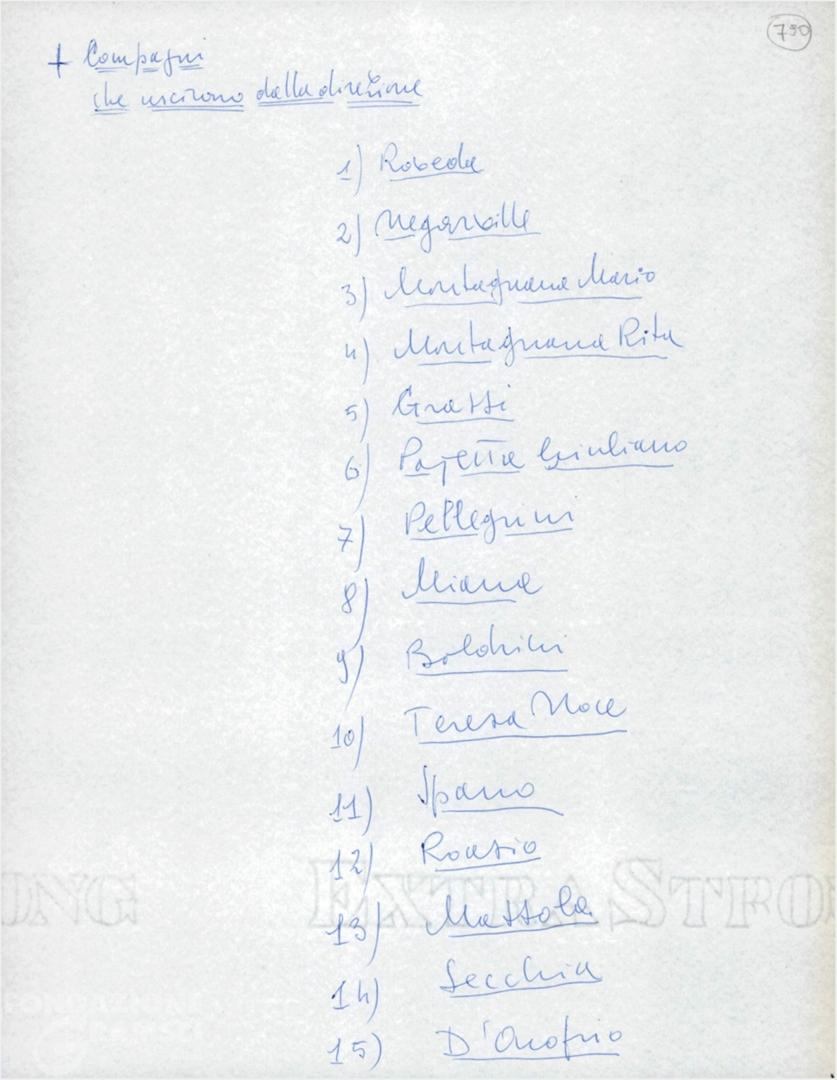 790
+ Compagni
che uscirono dalla direzione
1) Roveda
2) Negarville
3) Montagnana Mario
4) Montagnana Rita
5) Grassi
6) Pajetta Giuliano
7) Pellegrini
8) Miana
9) Boldrini
10) Teresa Noce
11) Spano
12) Roasio
13) Massola
14) Secchia
15) D'Onofrio
ONG EXTRA STRO
FONDAZIONE